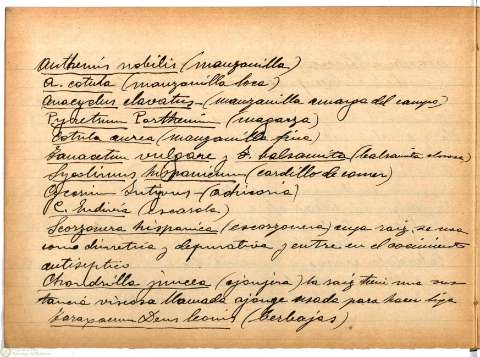 Anthemis nobilis (manzanilla)
A. cotula (manzanilla loca)
Anacyclus clavatus (manzanilla amarga del campo)
Pyretrum Parthenium (magarza)
Cotula aurea (manzanilla fina)
Tanacetum vulgare y T. balsamita (balsamita olorosa)
Scolimus hispanicum (cardillo de comer)
Cicorium Intybus (achicoria)
C. Endivia (escarola)
Scorzonera hispanica (escorzonera) cuya raiz, se usa
como diuretica y depurativa y entre en el cocimiento
antiséptico
Chondrilla juncea (ajonjera) la raiz tiene una sus
tancia viscosa llamada ajonge usada para hacer liga
Taraxacum Dens leonis (Cerbajas)